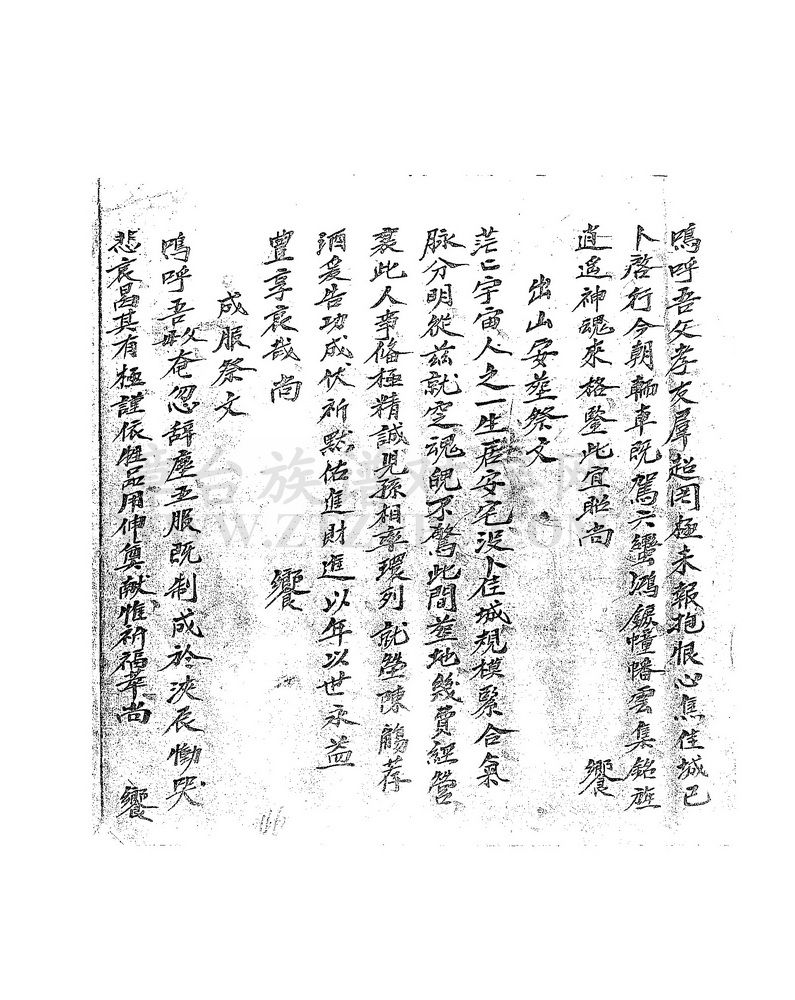 嗚呼吾父孝友羣超罔極未報抱恨心焦佳城已
卜啓行今朝輀車既駕六轡鴻鑣幢幡雲集銘旌
逍遙神魂來格鑒此宜昭尚 饗
出山安塟祭文
茫〻宇宙人之一生居安宅没卜佳城規模緊合氣
脉分明從茲就窆魂魄不驚此間塟地幾費經營
襄此人事俻極精誠児孫相率環列就塋陳觴荐
酒爰告功成伏祈默佑進財進 以年以世永益
豐享哀哉尚 饗
成服祭文
嗚呼吾 奄忽辭塵五服既制成於浹辰慟哭
悲哀曷其有極謹依牲品用伸奠献惟祈福荜尚 饗
166